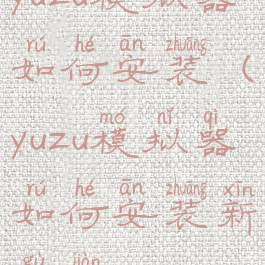 yuzu模拟器
rú hé ān zhuāng
如何安装（
mó nǐ qì
yuzu模拟器
rú hé ān zhuāng xīn
如何安装新
gù jiàn